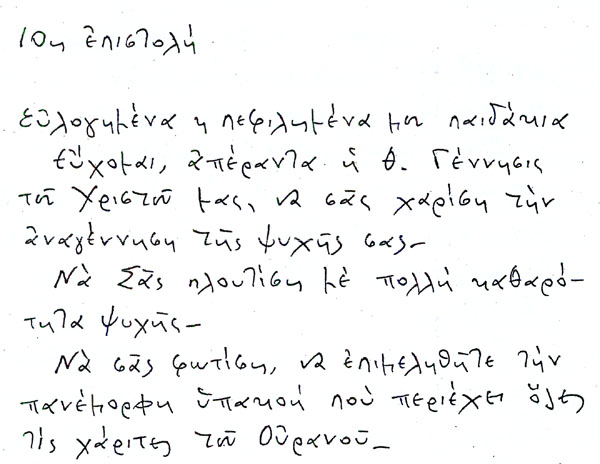 10η ἐπιστολή
Εὐλογημένα κ πεφιλημένα μου παιδάκια
Εὔχομαι, ἀπέραντα ἡ θ. Γέννησις
τοῦ Χριστοῦ μας, νὰ σᾶς χαρίση τὴν
ἀναγέννηση τῆς ψυχῆς σας–
Νὰ Σᾶς πλουτίση μὲ πολλή καθαρό–
τητα ψυχῆς–
Νὰ σᾶς φωτίση, νὰ ἐπιμεληθῆτε τὴν
πανέμορφη ὑπακοή ποὺ περιέχει ὅλες
τὶς χάριτες τοῦ Οὐρανοῦ–